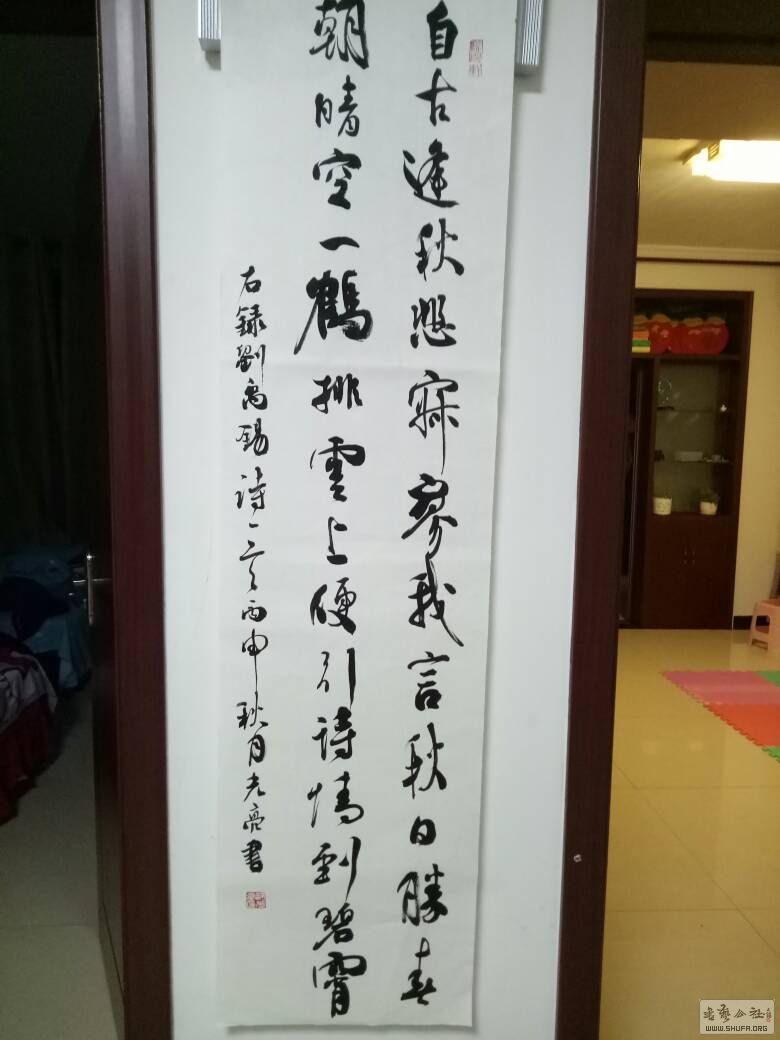 自古逢秋悲寂寥我言秋日勝春
朝晴空一鶴排雲上便引詩情到碧霄
右録劉禹錫詩一首丙申秋月光亮書
WWW.SHUFA.ORG